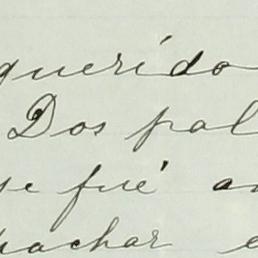 querido
Dos pal
se fué a
pachar e